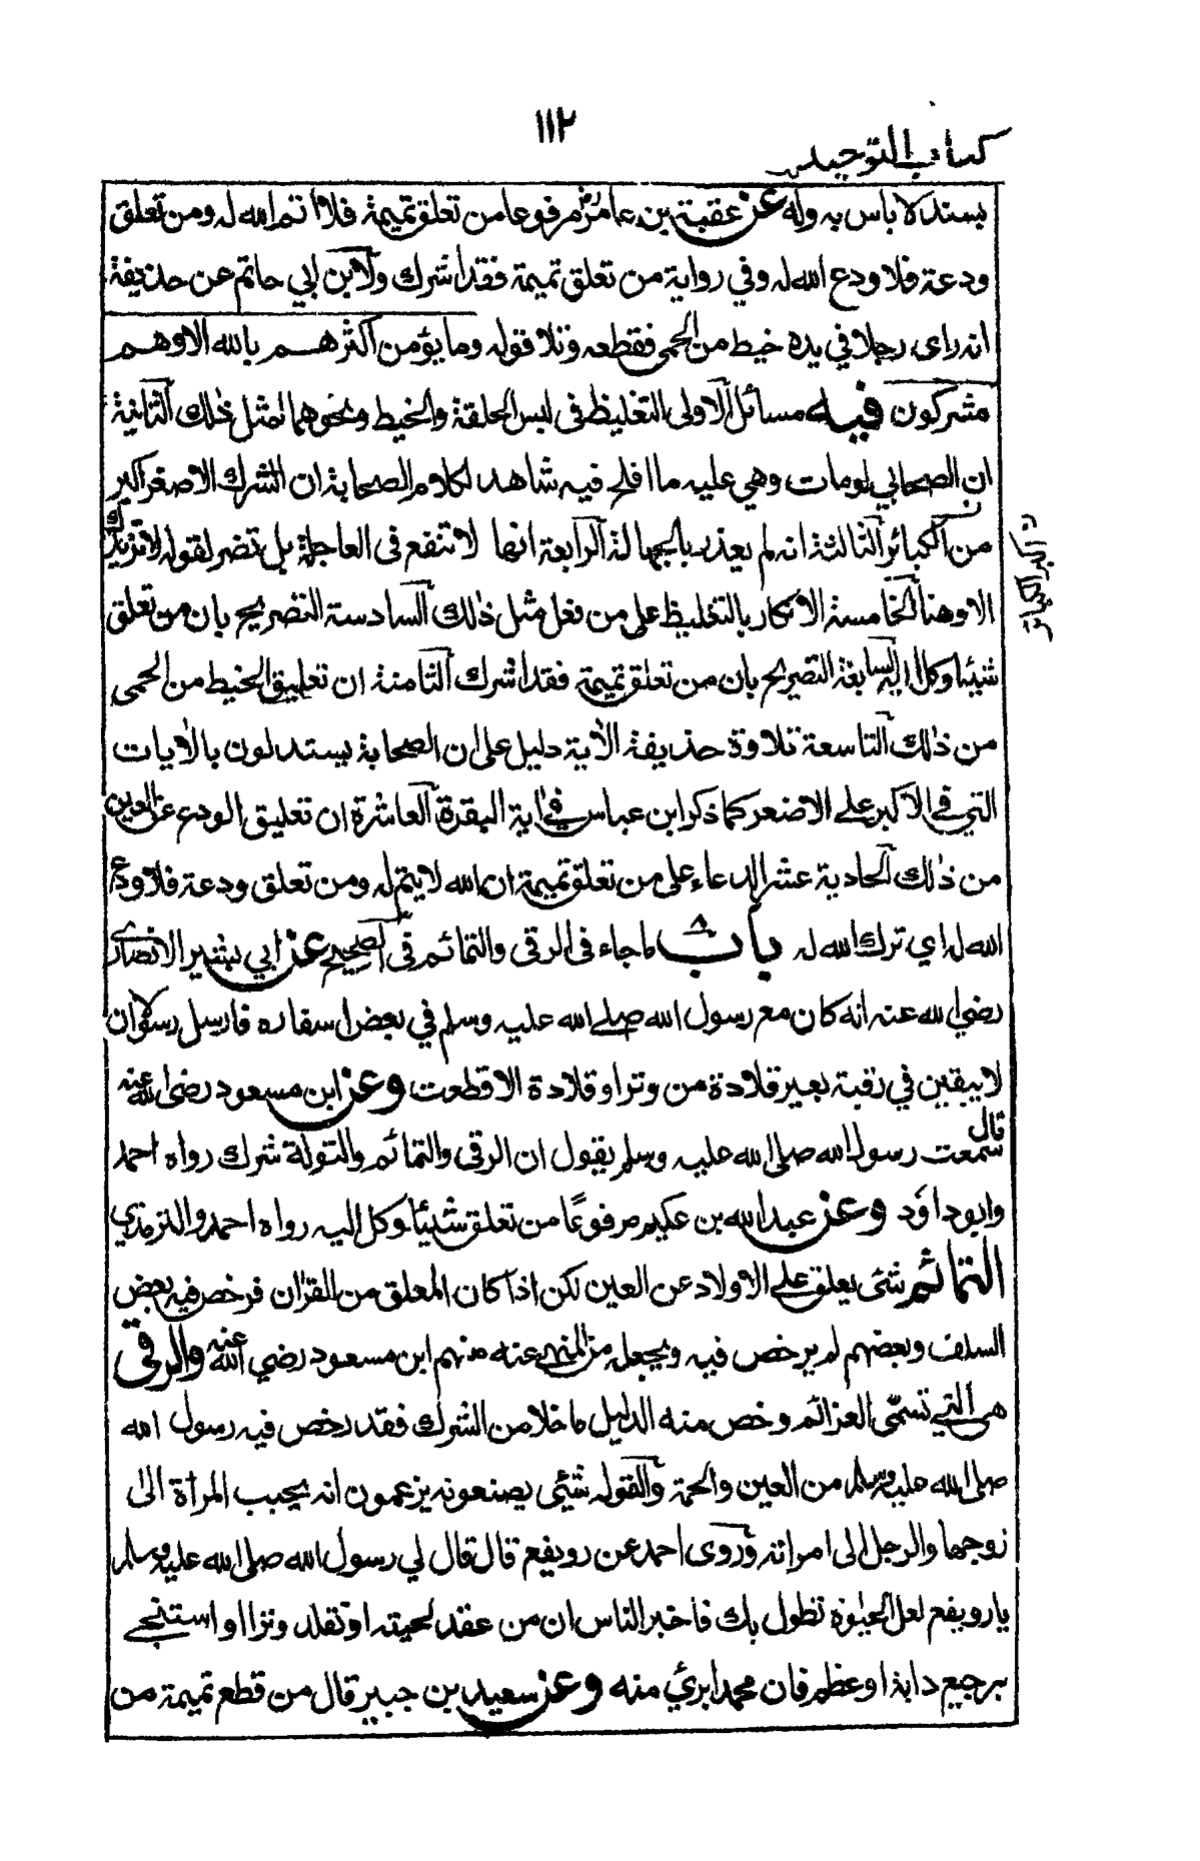 ١١٢
كتاب التوحيد
بسند لا باس به وله عن عقبة بن عامر مرفوعا من تعلق تميمة فلا اتم الله له ومن تعلق
ودعة فلا ودع الله له وفي رواية من تعلق تميمة فقد اشرك ولابن ابي حاتم عن حذيفة
انه راى رجلا في يده خيط من الحمى فقطعه وتلا قوله وما يؤمن اكثرهم بالله الا وهم
مشركون فيه مسائل الاولى التغليظ فى لبس الحلقة والخيط ونحوهما لمثل ذلك الثانية
ان الصحابي لو مات وهي عليه ما افلح فيه شاهد لكلام الصحابة ان الشرك الاصغر اكبر
من الكبائر الثالثة انه لم يعذر بالجهالة الرابعة انها لا تنفع فى العاجلة بل تضر لقوله لا تزيدك
الا وهنا الخامسة الانكار بالتغليظ على من فعل مثل ذلك السادسة التصريح بان من تعلق
شيئا وكل اليه السابعة التصريح بان من تعلق تميمة فقد اشرك الثامنة ان تعليق الخيط من الحمى
من ذلك التاسعة تلاوة حذيفة الاية دليل على ان الصحابة يستدلون بالايات
التي في الاكبر على الاصغر كما ذكر ابن عباس في اية البقرة العاشرة ان تعليق الودع عن العين
من ذلك الحادية عشر الدعاء على من تعلق تميمة ان الله لا يتم له ومن تعلق ودعة فلا ودع
الله له اي ترك الله له باب ٨ ما جاء فى الرقى والتمائم فى الصحيح عن ابي بشير الانصارى
رضي الله عنه انه كان مع رسول الله صلے الله عليه وسلم في بعض اسفاره فارسل رسولا ان
لا يبقين في رقبة بعير قلادة من وتر او قلادة الا قطعت وعن ابن مسعود رضى الله عنه
قال سمعت رسول الله صلى الله عليه وسلم يقول ان الرقى والتمائم والتولة شرك رواه احمد
وابو داؤد وعن عبد الله بن عكيم مرفوعًا من تعلق شيئا وكل اليه رواه احمد والترمذي
التمائم شئ يعلق على الاولاد عن العين لكن اذا كان المعلق من القران فرخص فيه بعض
السلف وبعضهم لم يرخص فيه ويجعله من المنهي عنه منهم ابن مسعود رضي الله عنه والرقى
هى التي تسمّى العزائم وخص منه الدليل ما خلا من الشرك فقد رخص فيه رسول الله
صلى الله عليه وسلم من العين والحمة والتولة شئي يصنعونه يزعمون انه يحبب المرأة الى
زوجها والرجل الى امراته وروى احمد عن رويفع قال قال لي رسول الله صلى الله عليه وسلم
يا رويفع لعل الحيوة تطول بك فاخبر الناس ان من عقد لحيته او تقلد وترا او استنجے
برجيع دابة او عظم فان محمدا برئ منه وعن سعيد بن جبير قال من قطع تميمة من
ن اكبر الكبائر